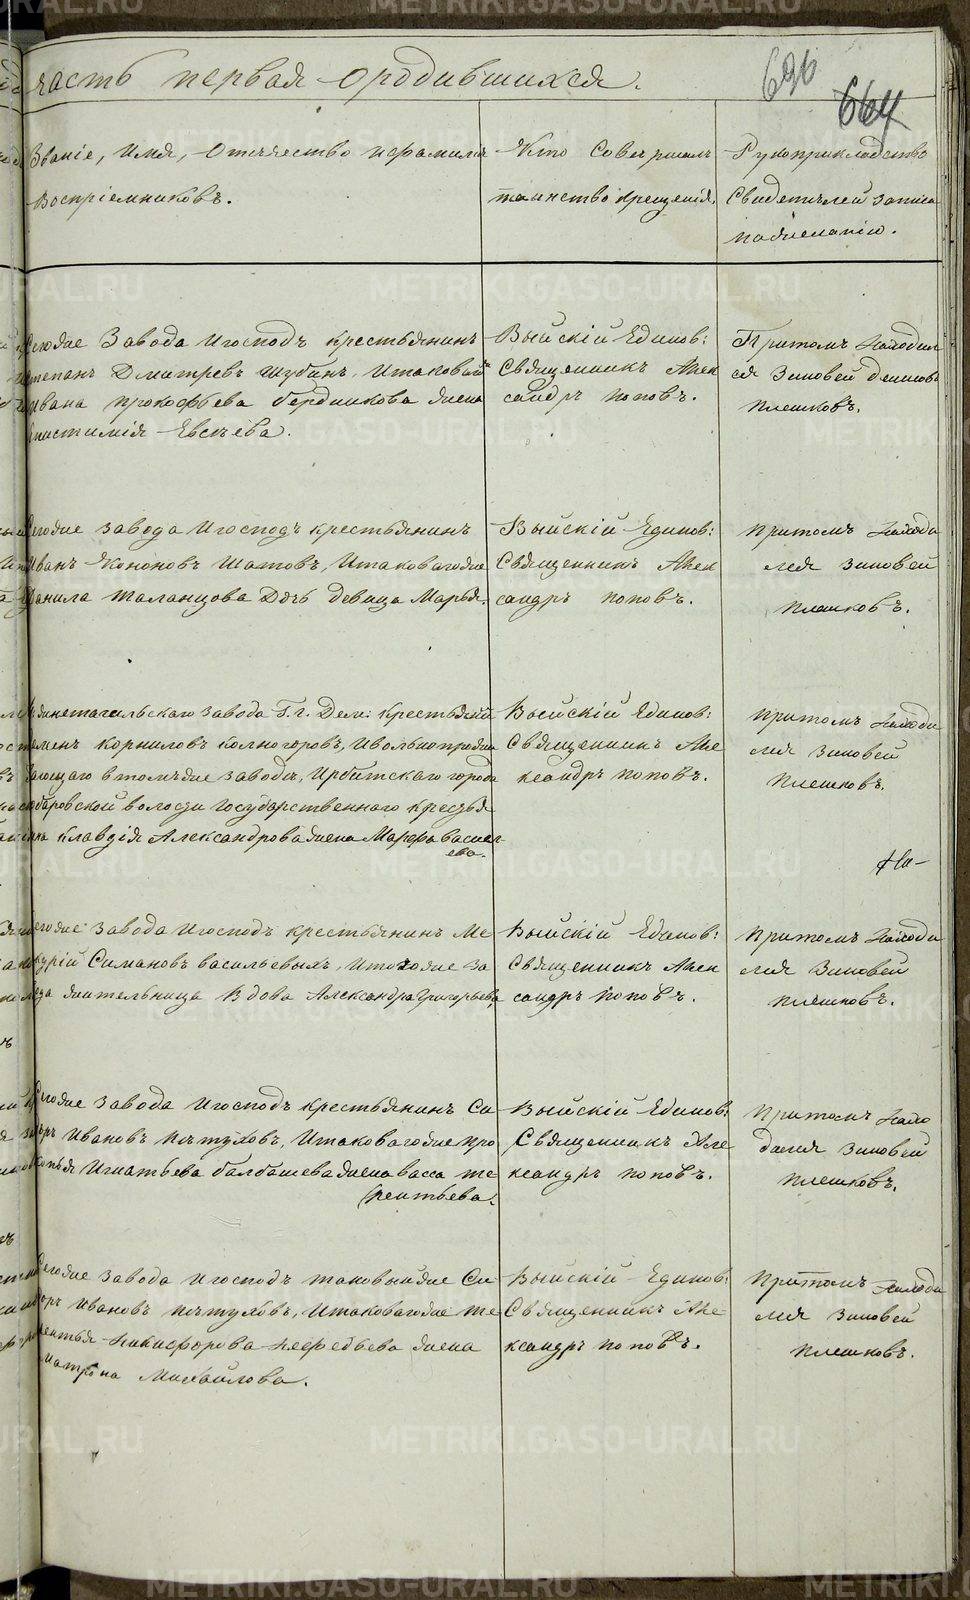 часть первая о родившихся.
696
664
Званіе, имя, отечество и фамилія
воспріемниковъ.
Кто совершалъ
таинство крещенія.
Рукоприкладство
свидетелей записи
по желанію.
Сегоже завода и господъ крестьянинъ
Степанъ Дмитревъ Шубинъ, и таковой
Ивана Прокофьева Бердникова жена
Епистимія Евсѣева.
Выйскій Единов:
Священникъ Алек
сандръ Поповъ.
Притомъ находил
ся Зиновей
Плешковъ.
Сегоже завода и господъ крестьянинъ
Иванъ Кононовъ Шатовъ, и таковагоже
Данила Таланцова дочь девица Марья.
Выйскій Единов:
Священникъ Алек
сандръ Поповъ.
Притомъ находи
лся Зиновей
Плешковъ.
Нижнетагильскаго завода Г. г. Дем: крестьянинъ
Корниловъ Колногоровъ, и вольнопрожи
вающаго въ томъ же заводѣ, Ирбитскаго города
волости государственнаго крестья
нина Клавдія Александрова жена Марфа Васил
ева.
Выйскій Единов:
Священникъ Але
ксандръ Поповъ.
Притомъ находи
лся Зиновей
Плешковъ.
На-
Сегоже завода и господъ крестьянинъ Ме
курій Симановъ Васильевыхъ, и тогоже за
вода жительница вдова Александра Григорьева,
Выйскій Единов:
Священникъ Алек
сандръ Поповъ.
Притомъ находи
лся Зиновей
Плешковъ.
Сегоже завода и господъ крестьянинъ Си
доръ Ивановъ Петуховъ, и таковагоже Про
копья Игнатьева Балбашева жена Васса Те
рентьева.
Выйскій Единов:
Священникъ Але
ксандръ Поповъ.
Притомъ нахо
дился Зиновей
Плешковъ.
Сегоже завода и господъ таковыйже Си
доръ Ивановъ Петуховъ, и таковагоже Те
рентья Никифорова Нефедьева жена
Матрона Михайлова.
Выйскій Единов:
Священникъ Але
ксандръ Поповъ.
Притомъ находи
лся Зиновей
Плешковъ.
METRIKI.GASO-URAL.RU